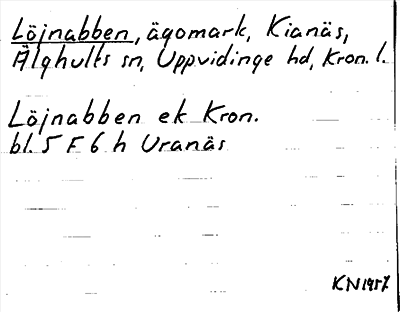 Löjnabben, ägomark, Kianäs,
Älghults sn, Uppvidinge hd, Kron. l.
Löjnabben ek Kron.
bl. 5 F 6 h Uranäs
KN 1957